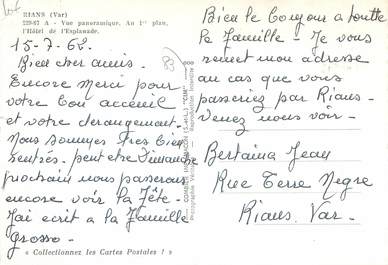 Lot
RIANS (Var)
229-67 A - Vue panoramique. Au 1er plan,
l'Hôtel de l'Esplanade.
15-7-62.
Bien cher amis.
Encore Merci pour
votre bon acceuil
et votre derangement.
Nous sommes tres bien
rentrés. peut etre Dimanche
prochain nous passerons
encore voir la Fête -
J'ai ecrit a la Famille
Grosso -
« Collectionnez les Cartes Postales ! »
83
COMBIER IMP. MACON (S.-et-L.) "CIM"
Photographie Véritable - Reproduction Interdite
Bien le bonjour a toutte
la famille - Je vous
remet mon adresse
au cas que vous
passeriez par Rians -
Venez nous voir -
Bertaina Jean
Rue Terre Negre
Rians. Var -